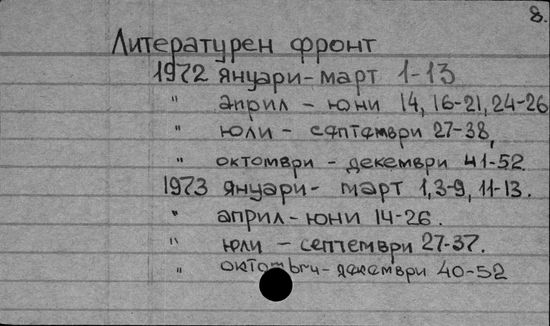 8.
Литературен фронт
1972 януари-март 1-13
" април - юни 14, 16-21, 24-26
" юли - септември 27-38,
" октомври - декември 41-52.
1973 януари- март 1,3-9, 11-13.
" април-юни 14-26.
" юли - септември 27-37.
" октомври-декември 40-52